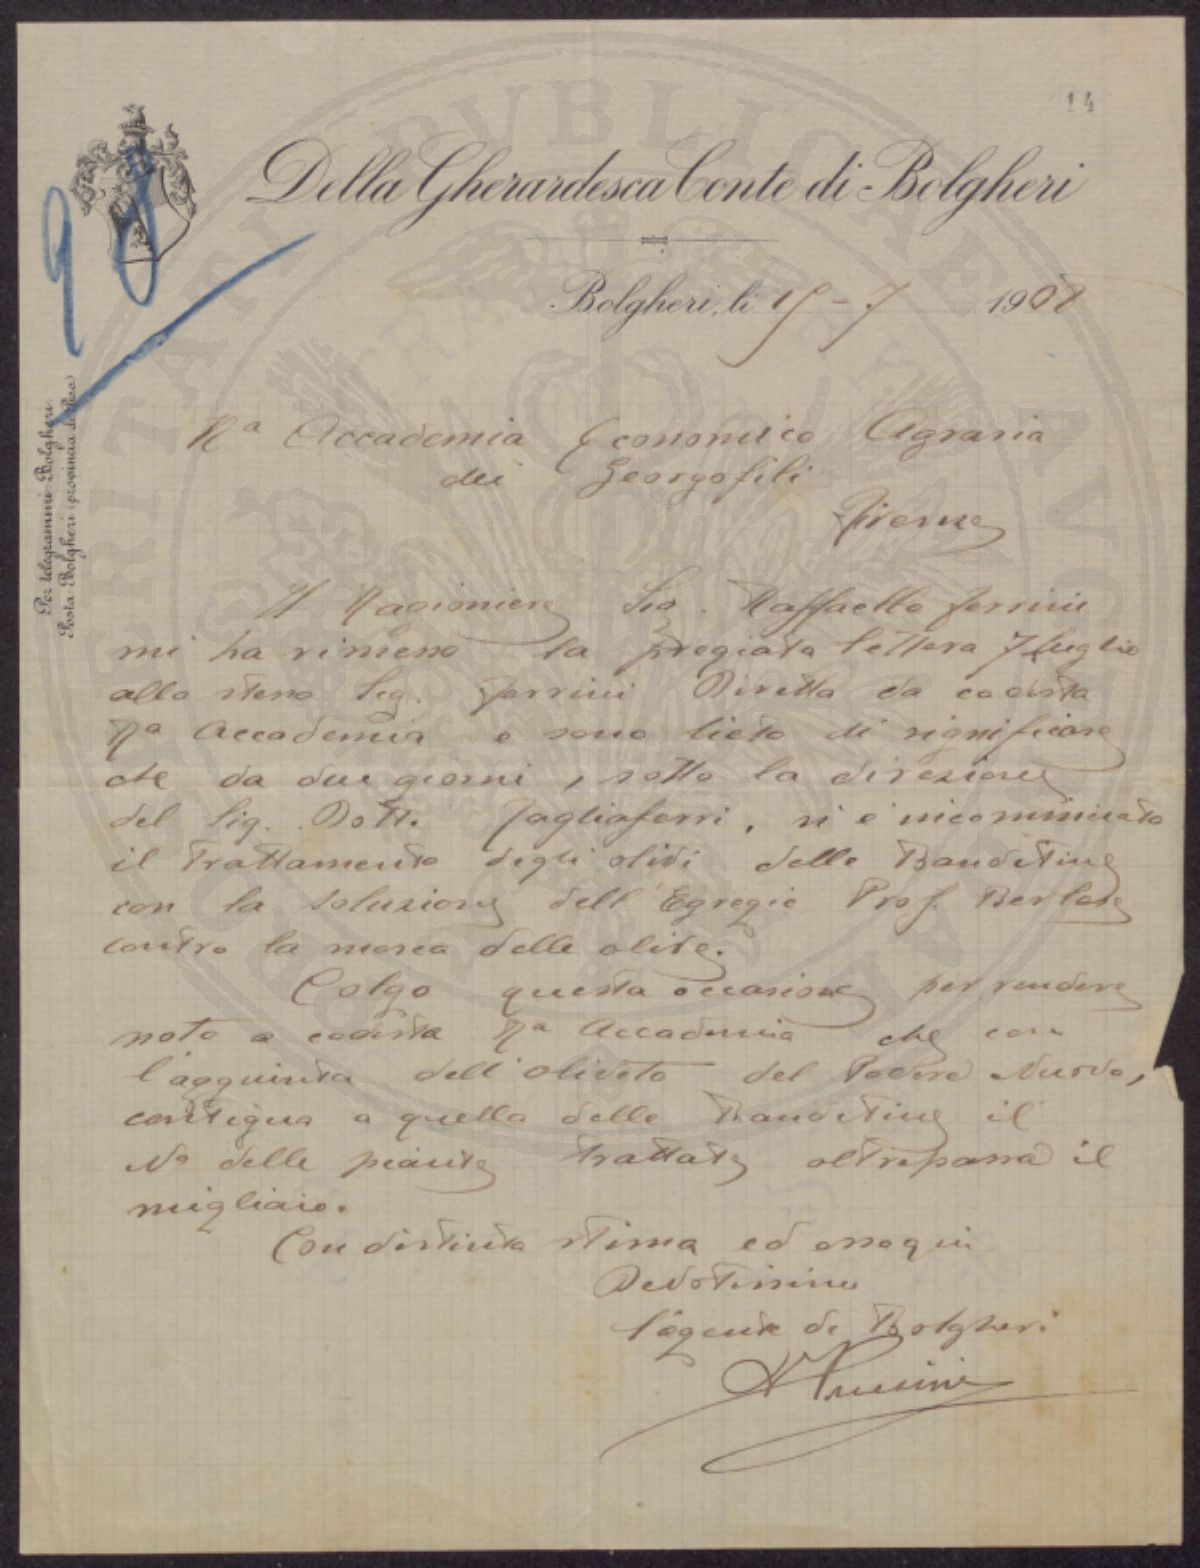 14
Della Gherardesca Conte di Bolgheri
Bolgheri, li 15-7 1907
Per telegrammi: Bolgheri
Posta: Bolgheri (provincia di Pisa)
Ra Accademia Economico Agraria
dei Georgofili
Firenze
Il Ragioniere Sig. Raffaello Ferrini
mi ha rimesso la pregiata lettera 7 luglio
allo stesso Sig. Ferrini Diretta da codesta
Ra Accademia e sono lieto di significare
che da due giorni, sotto la direzione
del Sig. Dott. Tagliaferri, si è incominciato
il trattamento degli olivi delle Banditine
con la soluzione dell'Egregio Prof. Berlese
contro la mosca delle olive.
Colgo questa occasione per rendere
noto a codesta Ra Accademia che con
l'aggiunta dell'oliveto del Podere Nuovo,
contiguo a quello delle Banditine il
No delle piante trattate oltrepassa il
migliaio.
Con distinta stima ed ossequi
Devotissimo
l'agente di Bolgheri